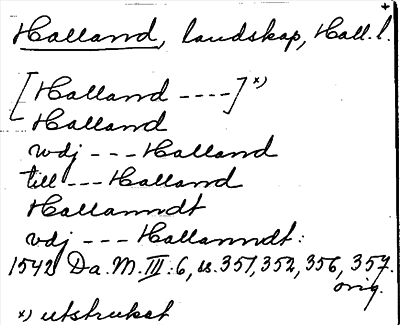 Halland, landskap, Hall. l.
[Halland ----] x)
Halland
wdj --- Halland
till --- Halland
Hallanndt
vdj --- Hallanndt:
1542 Da. M. III: 6, ss. 351, 352, 356, 357.
orig.
x) utstruket